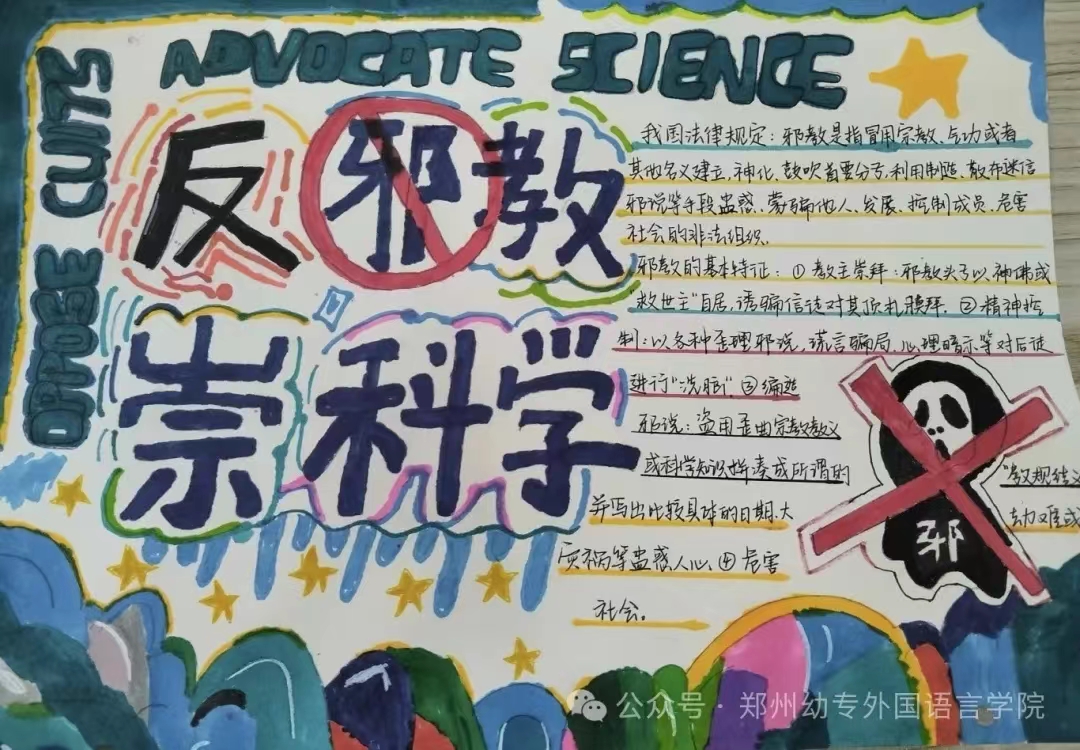 ADVOCATE SCIENCE
OPPOSE CULTS
反邪教
崇科学
我国法律规定：邪教是指冒用宗教、气功或者
其他名义建立、神化、鼓吹首要分子，利用制造、散布迷信
邪说等手段蛊惑、蒙骗他人、发展、控制成员、危害
社会的非法组织。
邪教的基本特征：①教主崇拜：邪教头子以神佛或
"救世主"自居，诱骗信徒对其顶礼膜拜。②精神控
制：以各种歪理邪说，谎言骗局，心理暗示等对信徒
进行"洗脑"。③编造
邪说：盗用歪曲宗教教义
或科学知识拼凑成所谓的 "教规
并写出比较具体的日期，大
灾祸等蛊惑人心。④危害
社会。
邪
公众号·郑州幼专外国语言学院